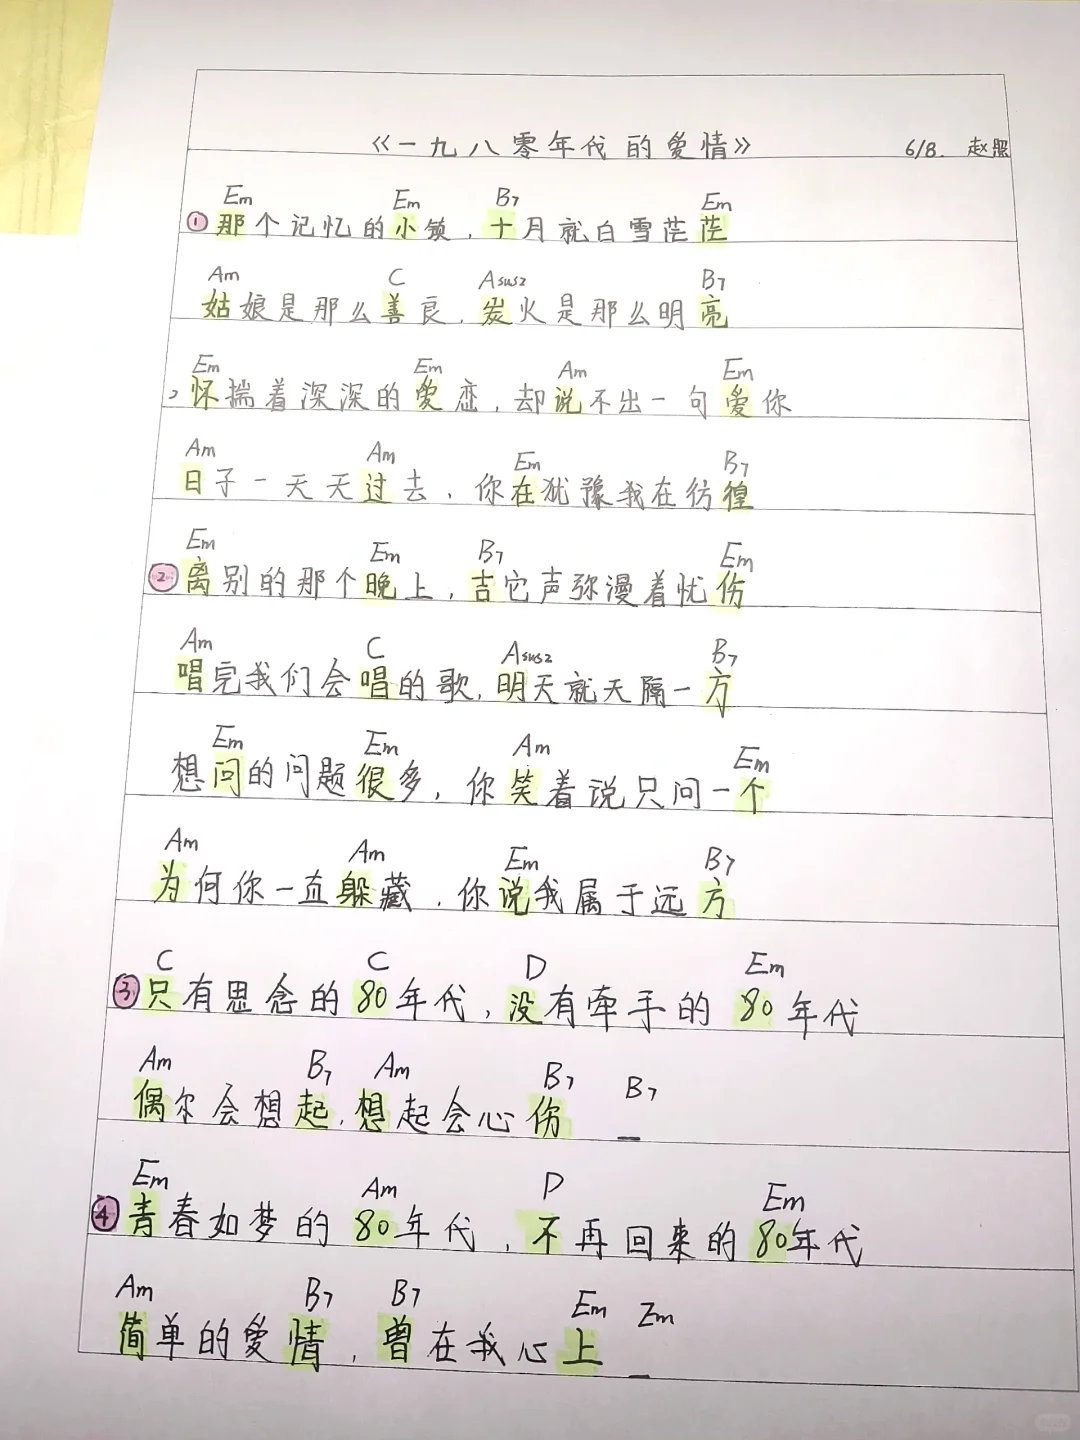 《一九八零年代的爱情》 6/8. 赵照
Em Em B7 Em
① 那个记忆的小镇，十月就白雪茫茫
Am C Asus2 B7
姑娘是那么善良，炭火是那么明亮
Em Em Am Em
怀揣着深深的爱恋，却说不出一句爱你
Am Am Em B7
日子一天天过去，你在犹豫我在彷徨
Em Em B7 Em
② 离别的那个晚上，吉它声弥漫着忧伤
Am C Asus2 B7
唱完我们会唱的歌，明天就天隔一方
Em Em Am Em
想问的问题很多，你笑着说只问一个
Am Am Em B7
为何你一直躲藏，你说我属于远方
C C D Em
③ 只有思念的80年代，没有牵手的80年代
Am B7 Am B7 B7
偶尔会想起，想起会心伤 _
Em Am D Em
④ 青春如梦的80年代，不再回来的80年代
Am B7 B7 Em Em
简单的爱情，曾在我心上 _